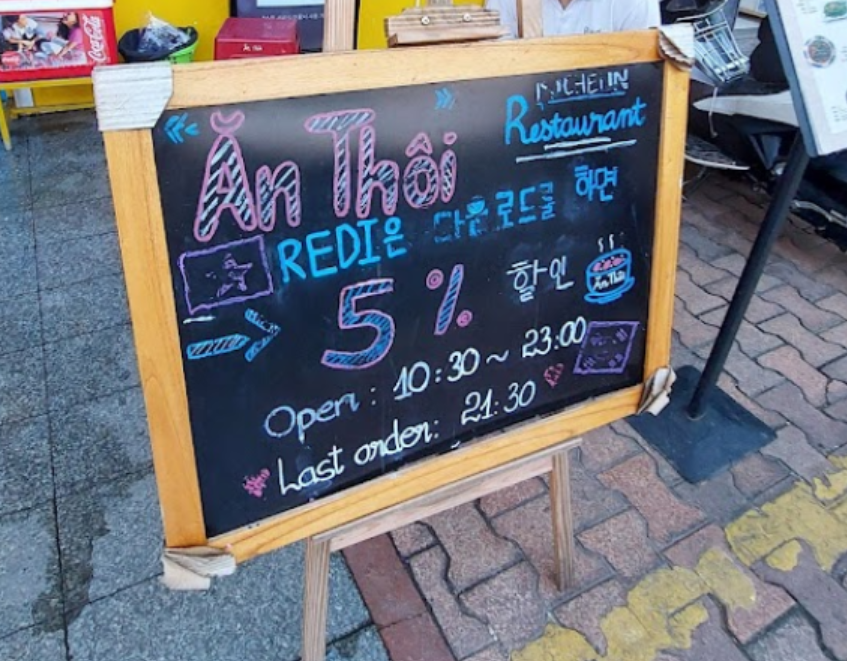 Coca-Cola
MICHELIN
Restaurant
Ăn Thôi
REDI은 다운로드를 하면
5% 할인
Ăn Thôi
Open : 10:30 ~ 23:00
Last order: 21:30